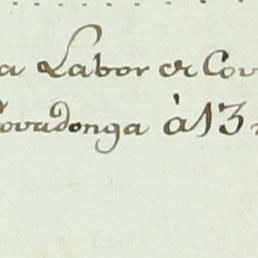 a Labor de Cov
Covadonga à 13